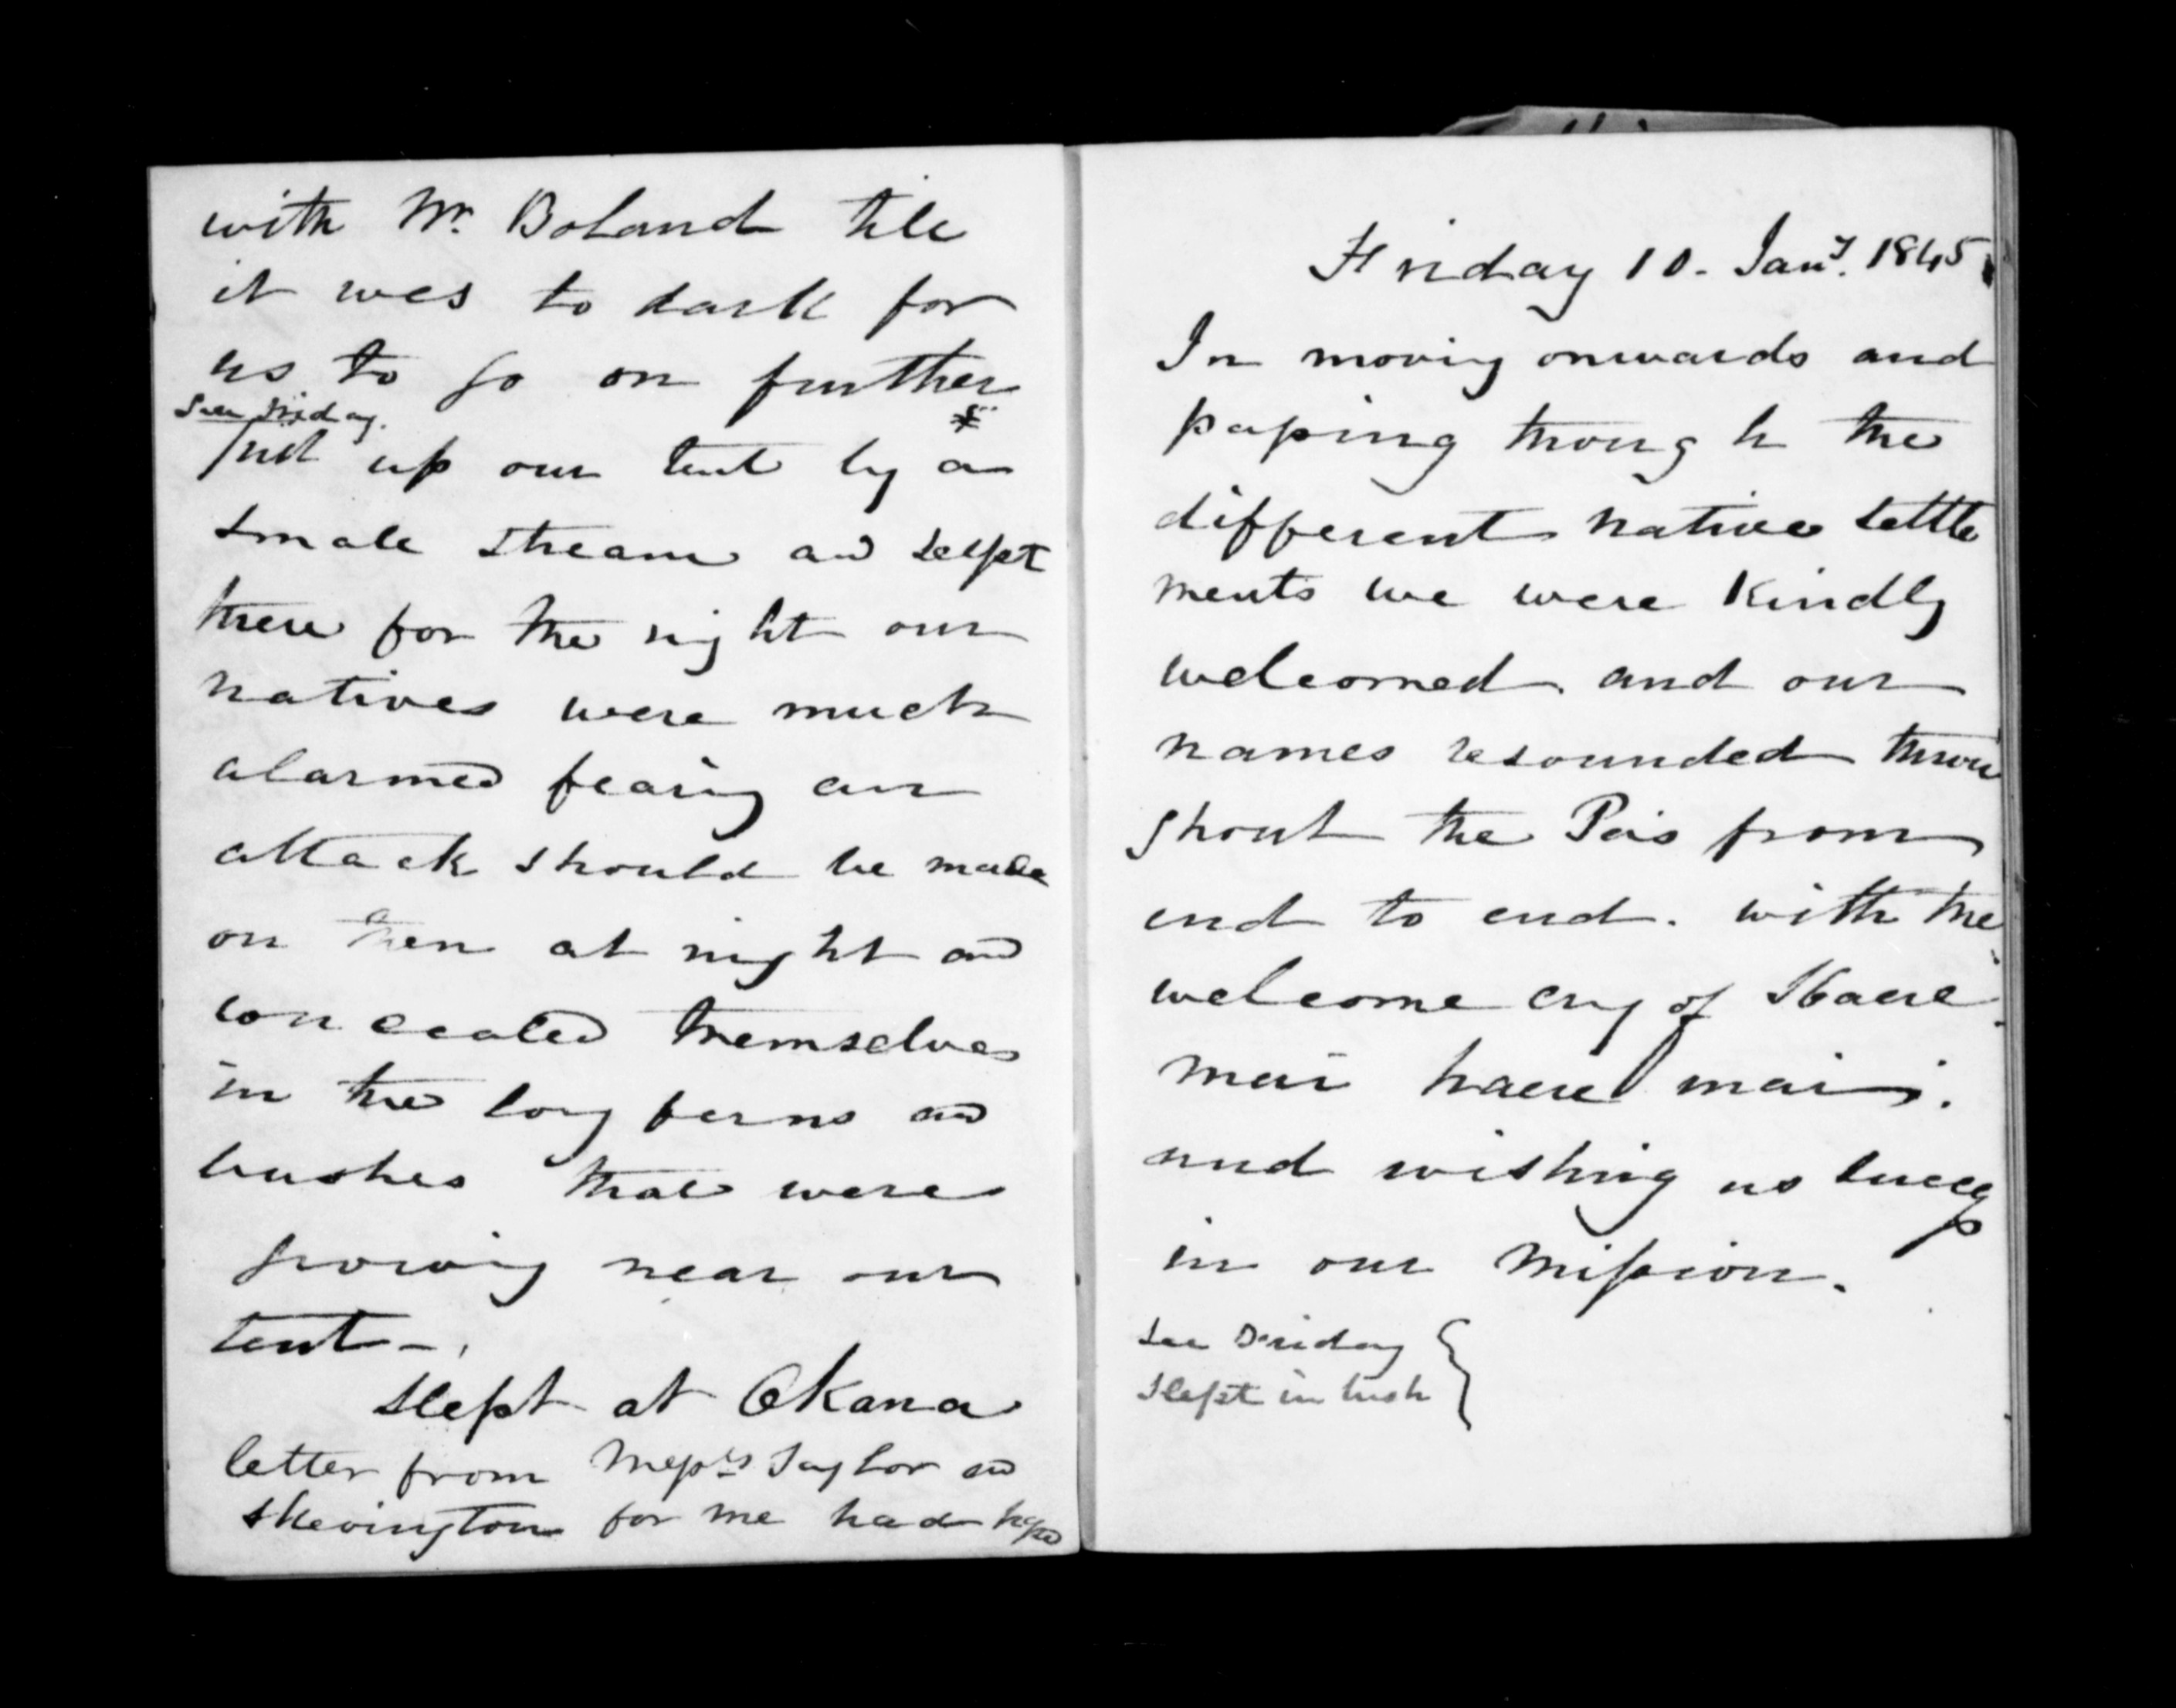 with Mr. Boland till
it was to dark for
us to go on further
See Friday. *
put up our tent by a
small stream and selpt
there for the night our
natives were much
alarmed fearing an
attack should be made
on then at night and
concealed themselves
in the long ferns and
bushes that were
growing near our
tent -.
Slept at Okana
letter from Messrs Taylor and
Skevington for me had
Friday 10. Jany. 1845
In moving onwards and
passing through the
different native settle
ments we were kindly
welcomed. and our
names resounded throu
ghout the Pas from
end to end. with the
welcome cry of Haere
mai haere mai.
and wishing us success
in our mission.
See Friday
Slept in bush